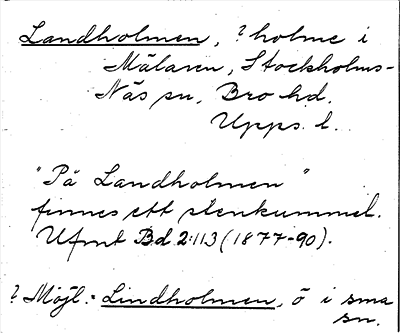 Landholmen, ? holme i
Mälaren, Stockholms-
Näs sn, Bro hd.
Upps. l.
"På Landholmen"
finnes ett stenkummel.
Ufmt Bd 2:113 (1877-90).
? Möjl. = Lindholmen, ö i sma
sn.